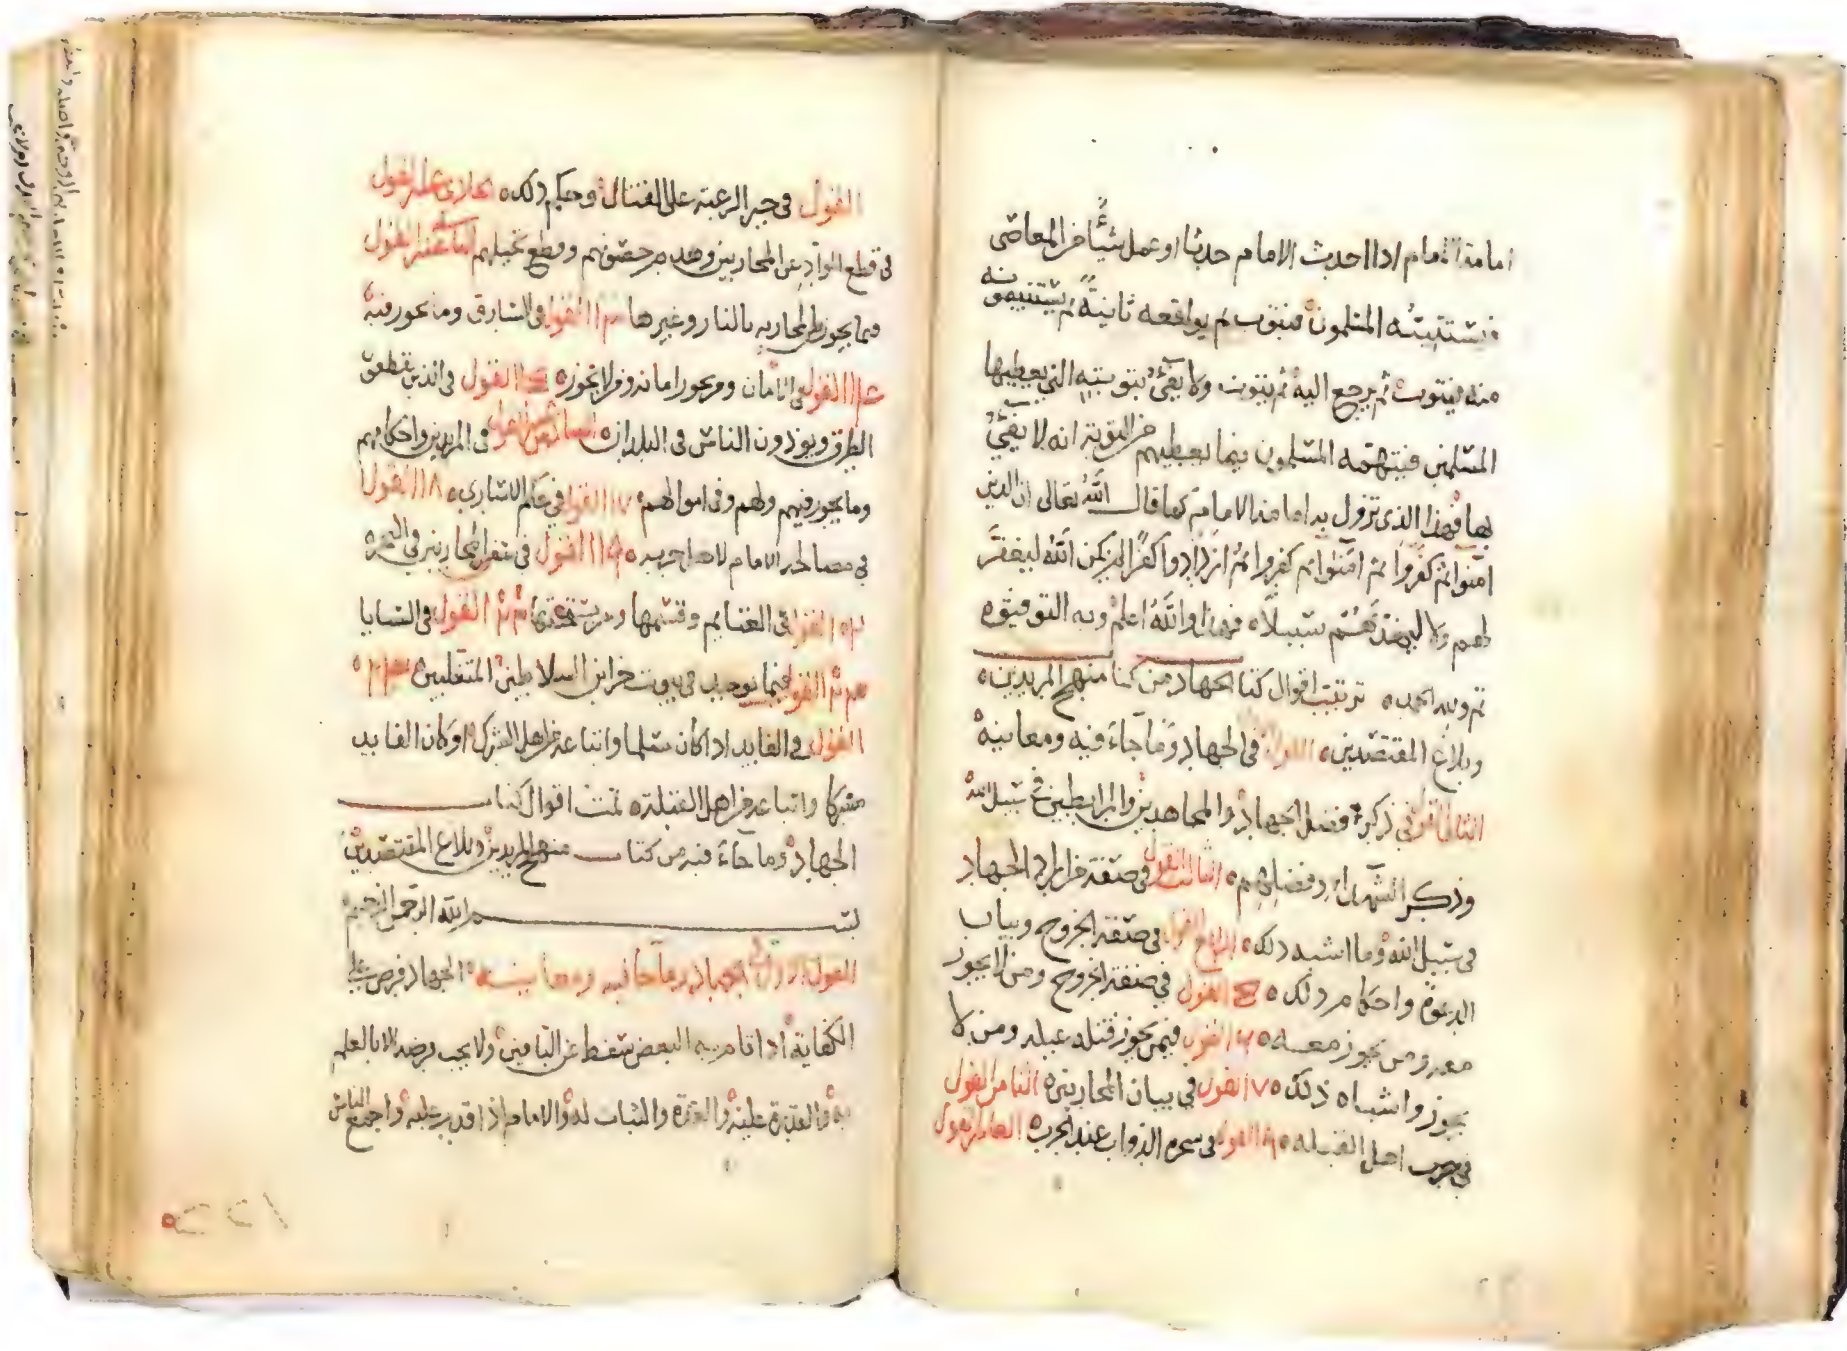 امامة الامام اذا احدث الامام حدثا او عمل شيئًا من المعاصي
فيستتيبه المسلمون فيتوب ثم يواقعه ثانيةً ثم يستتيبونه
منه فيتوب ثم يرجع اليه ثم يتوب ولا يفيء بتوبته التي يعطيها
المسلمين فيتهمه المسلمون فيما يعطيهم من التوبة انه لا يفيء
بها فهذا الذي تزول به امامة الامام كما قال الله تعالى ان الذين
امنوا ثم كفروا ثم امنوا ثم كفروا ثم ازدادوا كفرًا لم يكن الله ليغفر
لهم ولا ليهديهم سبيلاً فهذا والله اعلم وبه التوفيق
تم ولله الحمد ترتيب اقوال كتاب الجهاد من كتاب منهج المريدين
وبلاغ المقتصدين الاول في الجهاد وما جاء فيه ومعانيه
الثاني القول في ذكر فضل الجهاد والمجاهدين والمرابطين في سبيل الله
وذكر الشهداء وفضلهم الثالث القول في صفة من اراد الجهاد
في سبيل الله وما اشبه ذلك الرابع القول في صفة الخروج وبيان
الدعوة واحكام ذلك ٥ القول في صفة الخروج ومن لا يجوز
معه ومن يجوز معه ٦ القول فيمن يجوز قتله غيله ومن لا
يجوز واشباه ذلك ٧ القول في بيان المحاربين الثامن القول
في حرب اهل القبله ٩ القول في الدواب عند الحرب العاشر القول
القول في جبر الرعية على القتال وحكم ذلك الحادي عشر القول
في قطع المواد عن المحاربين وهدم حصونهم وقطع نخيلهم الثاني عشر القول
فيما يجوز للمحاربه بالنار وغيرها ١٣ القول في السارق وما يجوز فيه
١٤ القول في الامان ومن يجوز امانه ومن لا يجوز ١٥ القول في الذين يقطعون
الطرق ويوذون الناس في البلدان السادس عشر القول في المرتدين واحكامهم
وما يجوز فيهم ولهم وفي اموالهم ١٧ القول في حكم الاسارى ١٨ القول
في مصالحه الامام لاهل حربه ١٩ القول في المحاربين في البحر
٢٠ القول في الغنايم وقسمها ومن يستحقها ٢١ القول في السبايا
٢٢ القول فيما يوجد في بيوت خزاين السلاطين المتغلبين ٢٣
القول في القايد اذا كان مسلما واتباعه من اهل الشرك او كان القايد
مشركا واتباعه من اهل القبلة تمت اقوال كتاب
الجهاد وما جاء فيه من كتاب منهج المريدين وبلاغ المقتصدين
بسم الله الرحمن الرحيم
القول الاول في الجهاد وما جاء فيه ومعانيه الجهاد فرض على
الكفاية اذا قام به البعض سقط عن الباقين ولا يجب فرضه الا بالعلم
به والقدرة عليه والعدة والثبات له والامام اذا قدر عليه واجمع الناس